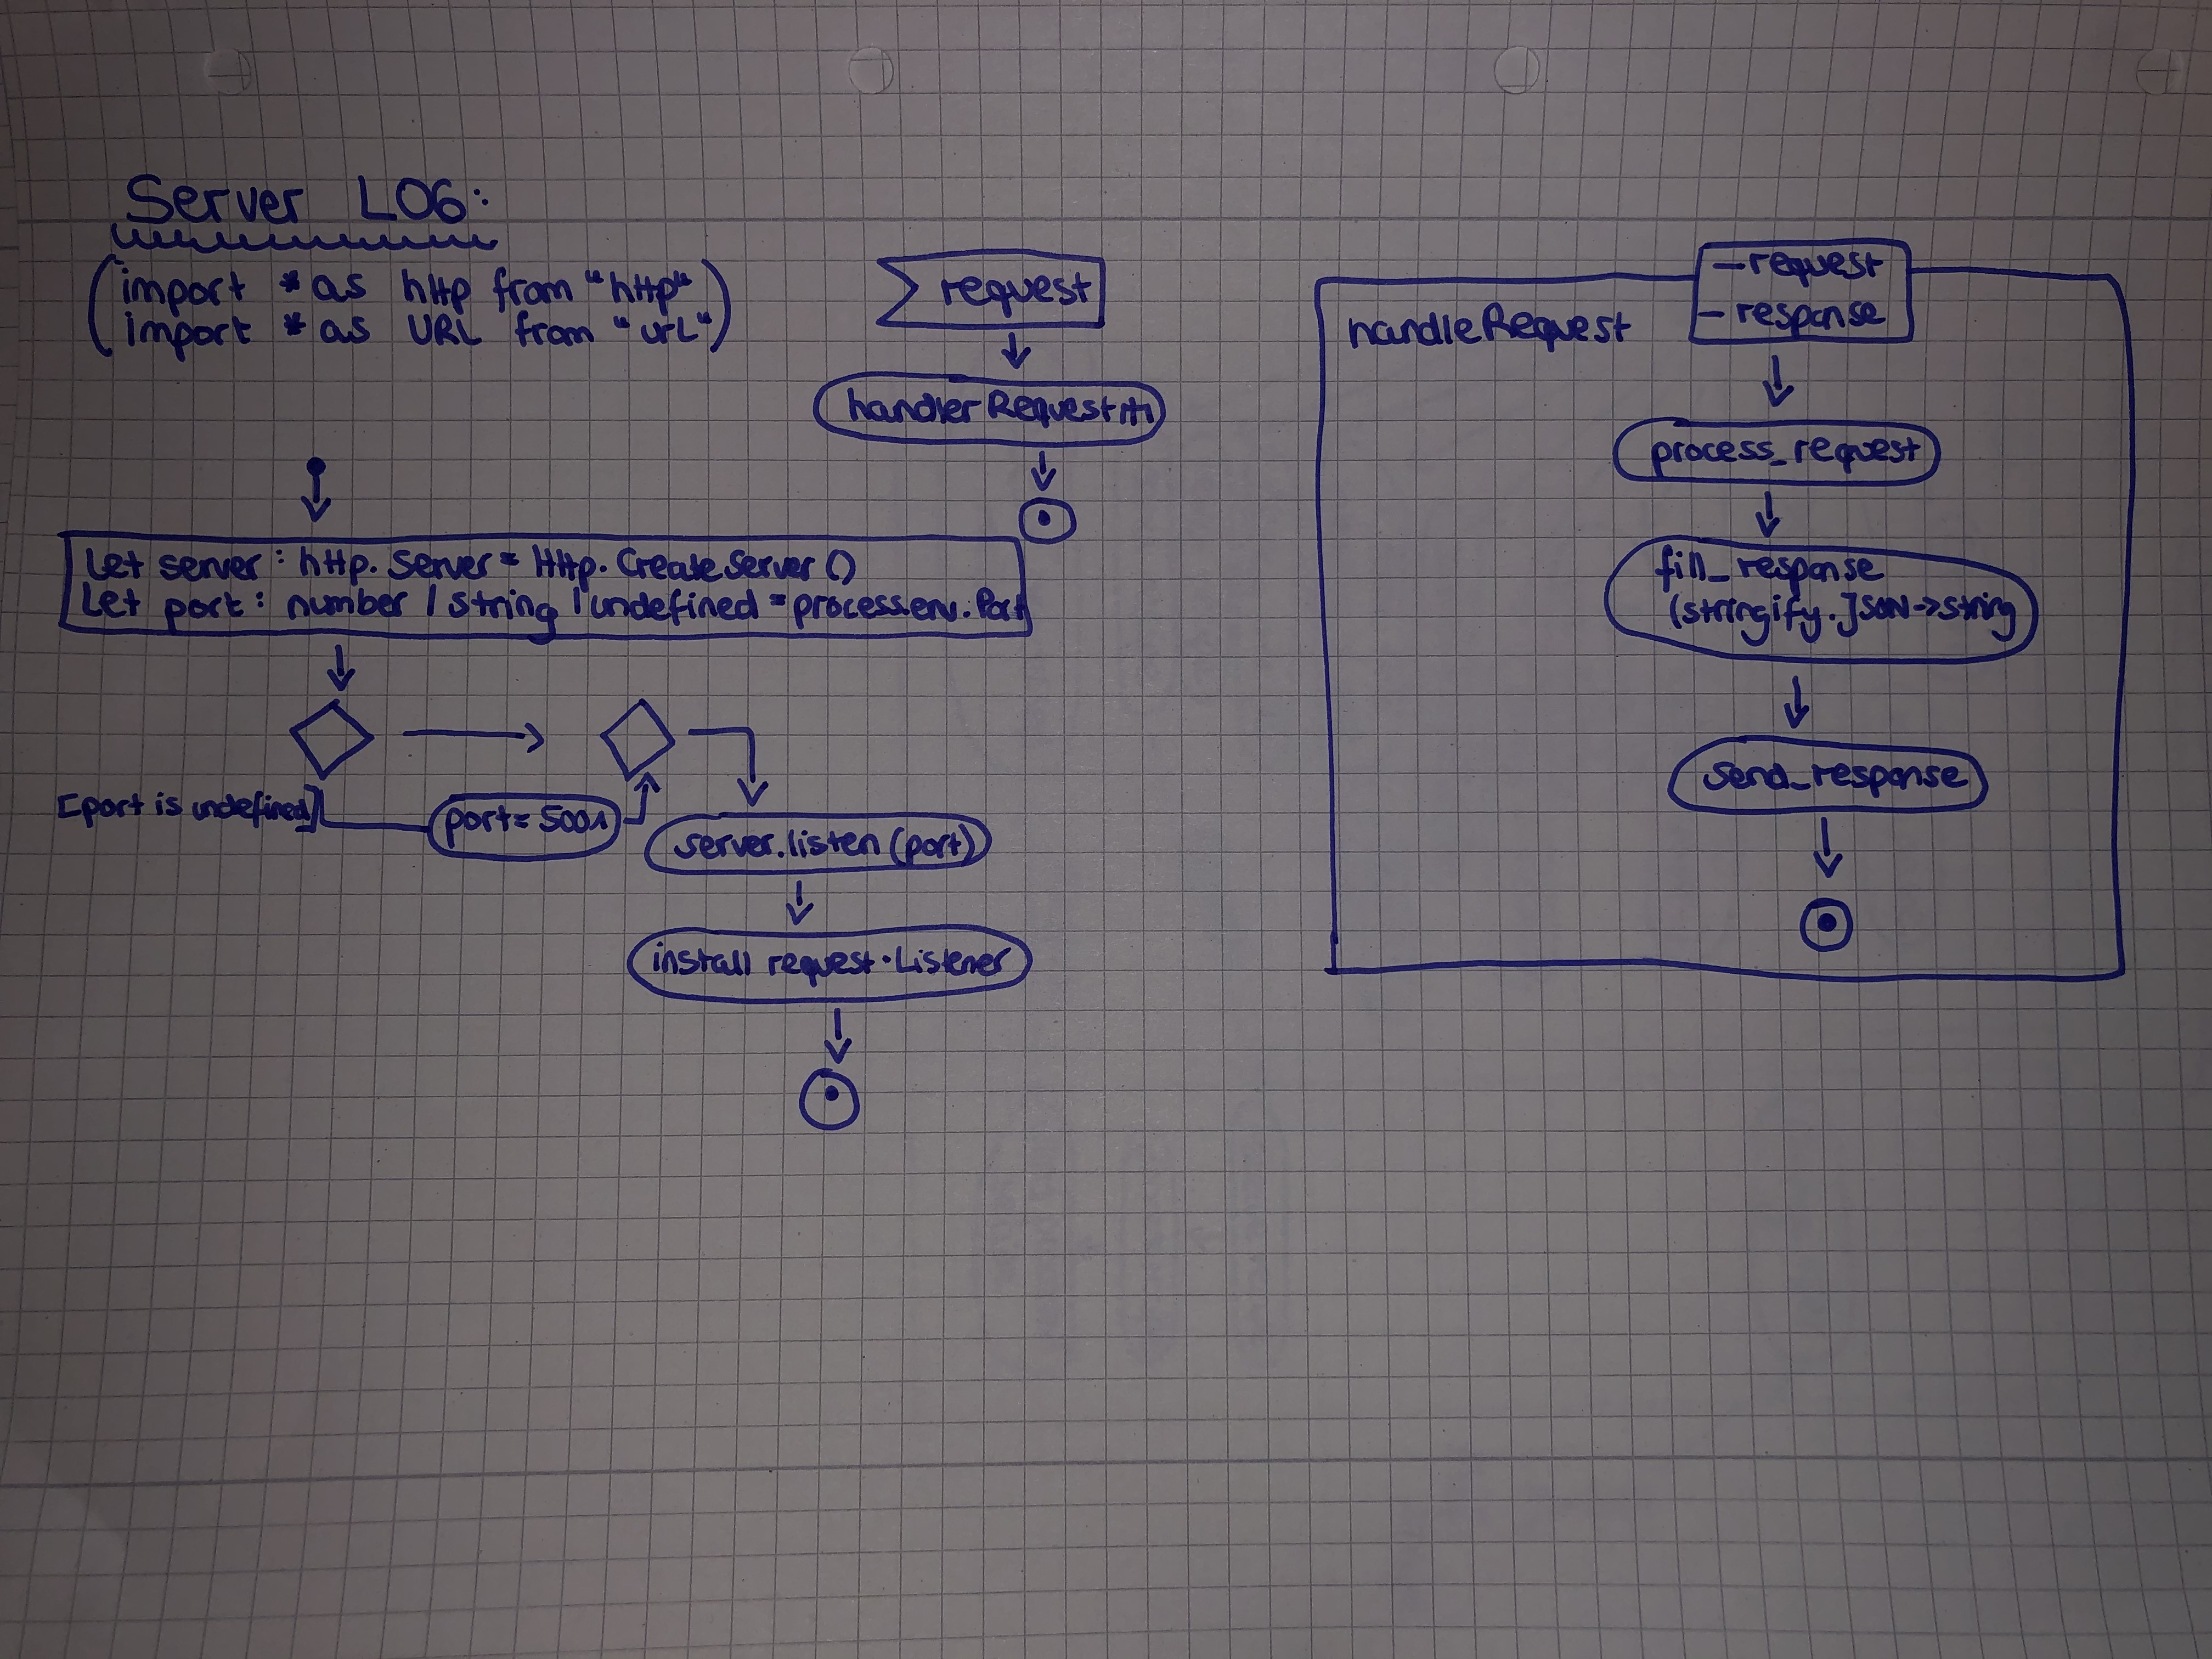 Server L06:
(import * as http from "http"
import * as URL from "url")
Let server: http.Server = Http.CreateServer()
Let port: number / string / undefined = process.env.Port
[port is undefined]
port = 5001
server.listen(port)
install request.Listener
request
handlerRequest
handleRequest
-request
-response
process_request
fill_response
(stringify.Json->string
send_response